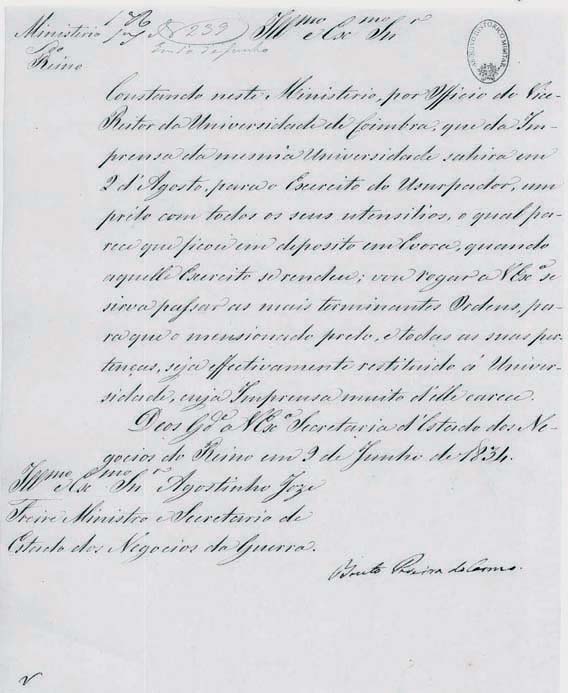 Ministerio do Reino
Nº 239
Illmo e Exmo Snr
Constando neste Ministerio, por Officio do Vice-
Reitor da Universidade de Coimbra, que da Im-
prensa da mesma Universidade sahira em
2 d'Agosto, para o Exercito do Usurpador, um
prélo com todos os seus utensilios, o qual pa-
rece que ficou em deposito em Evora, quando
aquelle Exercito se rendeu; vou rogar a V Exª se
sirva passar as mais terminantes Ordens, pa-
ra que o mensionado prelo, e todas as suas per-
tenças, seja effectivamente restituido á Univer-
sidade, cuja Imprensa muito d'elle carece.
Deos Gde a V Exª Secretaria d'Estado dos Ne-
gocios do Reino em 9 de Junho de 1834.
Illmo e Exmo Snr Agostinho Joze
Freire Ministro e Secretario de
Estado dos Negocios da Guerra.
Bento Pereira do Carmo.